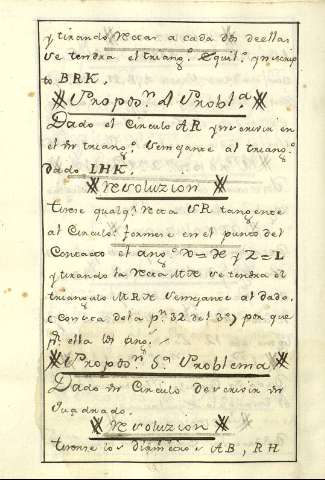 y tirando rectas a cada dos de ellas
se tendra el triang.º Equil.º ynscrip
to BRK.
Propos.ⁿ 4 Probl.ª
Dado el Circulo AR ynscrivir en
el un triang.º semejante al triang.º
dado IHK.
Resoluzion
tirese qualq.ª Recta SR tangente
al Circulo: formese en el punto del
Contacto el ang.º X=H y Z=L
y tirando la Recta se tendra el
triangulo semejante al dado.
(Consta de la p.ⁿ 32 del 3º) por que
Propos.ⁿ 5ª Problema
Dado un Circulo Descrivir un
Quadrado.
Resoluzion
tirense los diametros AB, RH